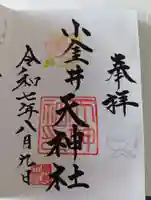 奉拝
小金井天神社
令和七年八月九日